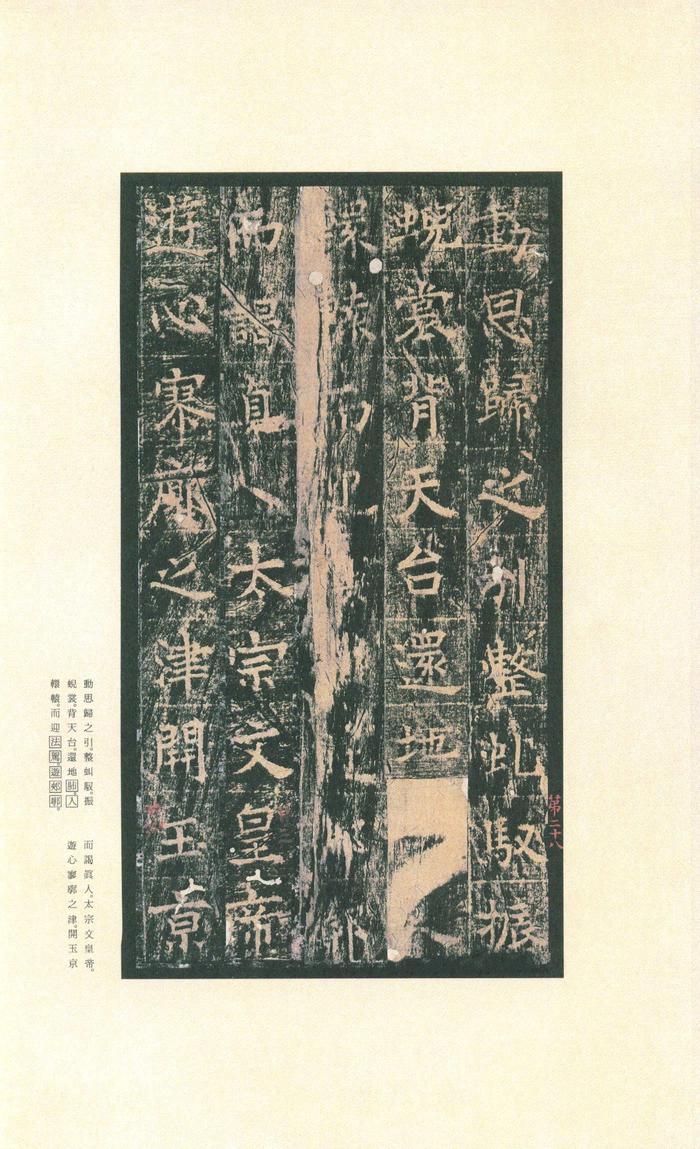 動思歸之引整虬馭振
蜺裳背天台還地
轅而迎
而謁真人太宗文皇帝
遊心寥廓之津開玉京
第二十八
動思歸之引。整虯馭。振
蜺裳。背天台。還地肺。入
轘轅。而迎法駕。遊郊鄏。
而謁眞人。太宗文皇帝。
遊心寥廓之津。開玉京